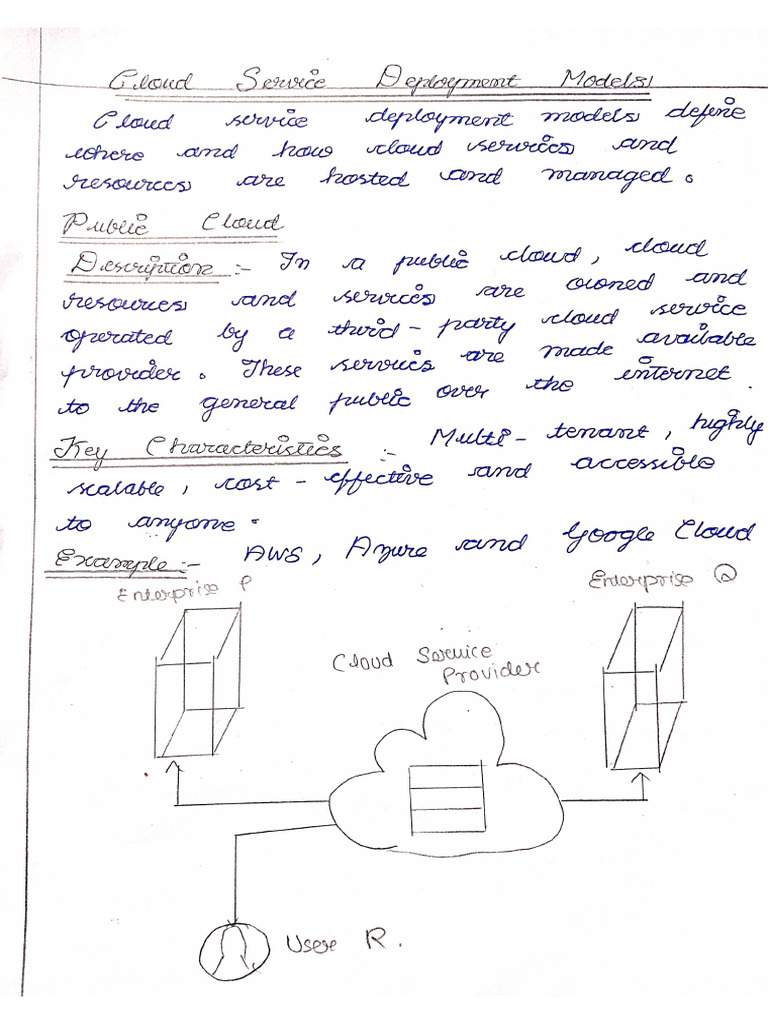 Cloud Service Deployment Models
Cloud service deployment models define
where and how cloud services and
resources are hosted and managed.
Public Cloud
Description :- In a public cloud, cloud
resources and services are owned and
operated by a third-party cloud service
provider. These services are made available
to the general public over the internet.
Key Characteristics :- Multi-tenant, highly
scalable, cost-effective and accessible
to anyone.
Example :- AWS, Azure and Google Cloud
Enterprise P
Enterprise Q
Cloud Service
Provider
User R.